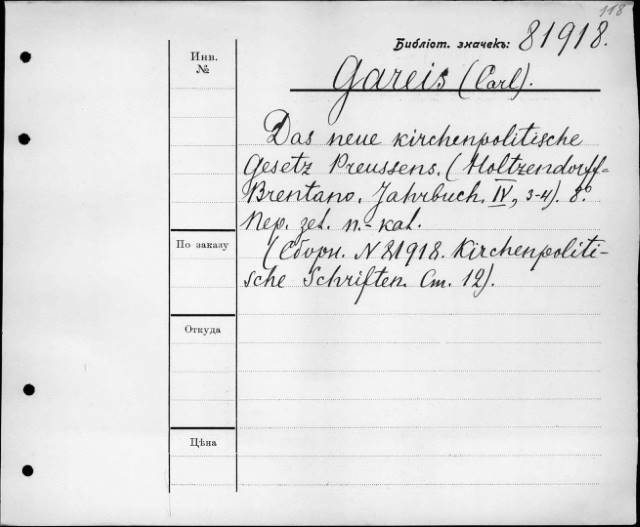 118
Библіот. значекъ: 81918.
Инв.
№
Gareis (Carl).
Das neue kirchenpolitische
Gesetz Preussens. (Holtzendorff-
Brentano. Jahrbuch. IV, 3-4). 8º.
Нер. zet. n.-kat.
По заказу
(Сборн. N 81918. Kirchenpoliti-
sche Schriften. Ст. 12).
Откуда
Цѣна